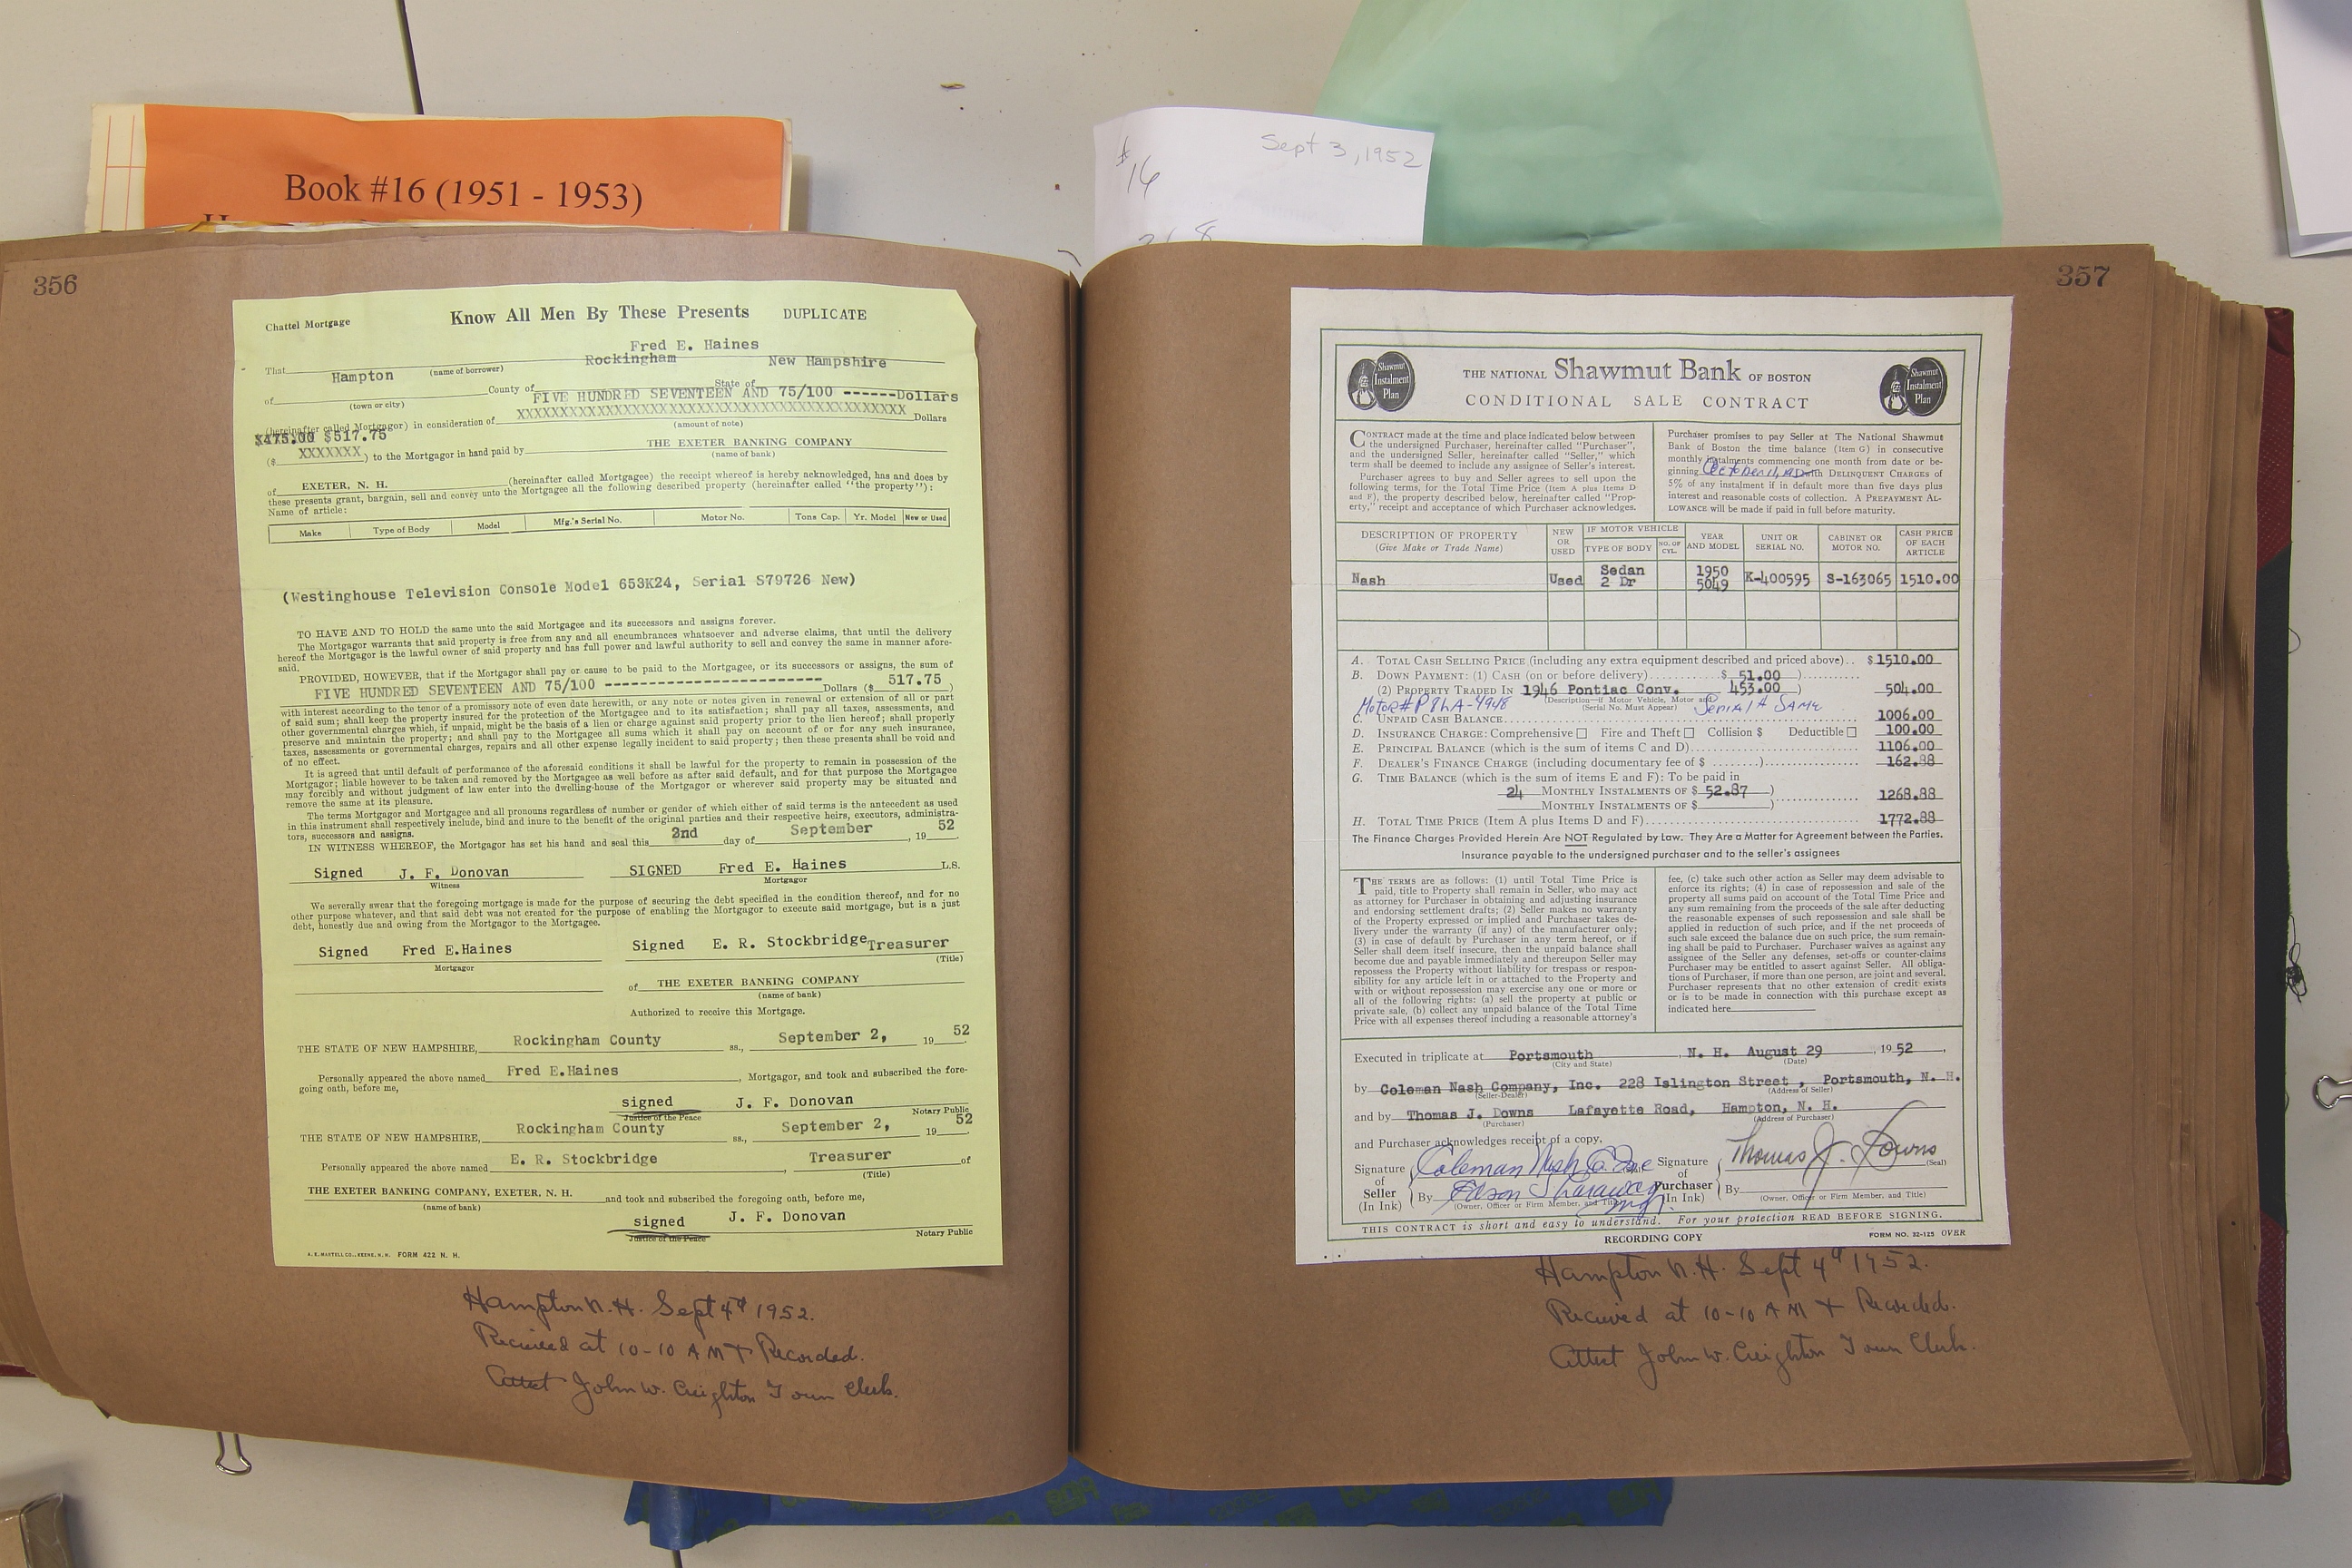 Book #16 (1951 - 1953)
# 16
Sept 3, 1952
356
Chattel Mortgage
Know All Men By These Presents DUPLICATE
Fred E. Haines
That
(name of borrower)
Hampton Rockingham New Hampshire
of County of State of
(town or city)
FIVE HUNDRED SEVENTEEN AND 75/100 ------Dollars
XXXXXXXXXXXXXXXXXXXXXXXXXXXXXXXXXXXXXXXXXXXX
(hereinafter called Mortgagor) in consideration of Dollars
(amount of note)
$475.00 $517.75
($ XXXXXXX ) to the Mortgagor in hand paid by THE EXETER BANKING COMPANY
(name of bank)
of EXETER, N. H. (hereinafter called Mortgagee) the receipt whereof is hereby acknowledged, has and does by
these presents grant, bargain, sell and convey unto the Mortgagee all the following described property (hereinafter called "the property"):
Name of article:
Make Type of Body Model Mfg.'s Serial No. Motor No. Tons Cap. Yr. Model New or Used
(Westinghouse Television Console Model 653K24, Serial S79726 New)
TO HAVE AND TO HOLD the same unto the said Mortgagee and its successors and assigns forever.
The Mortgagor warrants that said property is free from any and all encumbrances whatsoever and adverse claims, that until the delivery
hereof the Mortgagor is the lawful owner of said property and has full power and lawful authority to sell and convey the same in manner afore-
said.
PROVIDED, HOWEVER, that if the Mortgagor shall pay or cause to be paid to the Mortgagee, or its successors or assigns, the sum of
FIVE HUNDRED SEVENTEEN AND 75/100 ------------------------Dollars ($ 517.75 )
with interest according to the tenor of a promissory note of even date herewith, or any note or notes given in renewal or extension of all or part
of said sum; shall keep the property insured for the protection of the Mortgagee and to its satisfaction; shall pay all taxes, assessments, and
other governmental charges which, if unpaid, might be the basis of a lien or charge against said property prior to the lien hereof; shall properly
preserve and maintain the property; and shall pay to the Mortgagee all sums which it shall pay on account of or for any such insurance,
taxes, assessments or governmental charges, repairs and all other expense legally incident to said property; then these presents shall be void and
of no effect.
It is agreed that until default of performance of the aforesaid conditions it shall be lawful for the property to remain in possession of the
Mortgagor; liable however to be taken and removed by the Mortgagee as well before as after said default, and for that purpose the Mortgagee
may forcibly and without judgment of law enter into the dwelling-house of the Mortgagor or wherever said property may be situated and
remove the same at its pleasure.
The terms Mortgagor and Mortgagee and all pronouns regardless of number or gender of which either of said terms is the antecedent as used
in this instrument shall respectively include, bind and inure to the benefit of the original parties and their respective heirs, executors, administra-
tors, successors and assigns.
IN WITNESS WHEREOF, the Mortgagor has set his hand and seal this 2nd day of September , 19 52
Signed J. F. Donovan SIGNED Fred E. Haines L.S.
Witness Mortgagor
We severally swear that the foregoing mortgage is made for the purpose of securing the debt specified in the condition thereof, and for no
other purpose whatever, and that said debt was not created for the purpose of enabling the Mortgagor to execute said mortgage, but is a just
debt, honestly due and owing from the Mortgagor to the Mortgagee.
Signed Fred E.Haines Signed E. R. Stockbridge Treasurer
Mortgagor (Title)
of THE EXETER BANKING COMPANY
(name of bank)
Authorized to receive this Mortgage.
THE STATE OF NEW HAMPSHIRE, Rockingham County ss., September 2, 19 52
Personally appeared the above named Fred E.Haines , Mortgagor, and took and subscribed the fore-
going oath, before me,
signed J. F. Donovan
Justice of the Peace Notary Public
THE STATE OF NEW HAMPSHIRE, Rockingham County ss., September 2, 19 52
Personally appeared the above named E. R. Stockbridge , Treasurer of
(Title)
THE EXETER BANKING COMPANY, EXETER, N. H. and took and subscribed the foregoing oath, before me,
(name of bank)
signed J. F. Donovan
Justice of the Peace Notary Public
A. E. MARTELL CO., KEENE, N. H. FORM 422 N. H.
Hampton N. H. Sept 4th 1952.
Recieved at 10-10 A M + Recorded.
Attest John W. Creighton Town Clerk.
357
Shawmut Instalment Plan
THE NATIONAL Shawmut Bank OF BOSTON
CONDITIONAL SALE CONTRACT
Shawmut Instalment Plan
CONTRACT made at the time and place indicated below between
the undersigned Purchaser, hereinafter called "Purchaser",
and the undersigned Seller, hereinafter called "Seller," which
term shall be deemed to include any assignee of Seller's interest.
Purchaser agrees to buy and Seller agrees to sell upon the
following terms, for the Total Time Price (Item A plus Items D
and F), the property described below, hereinafter called "Prop-
erty," receipt and acceptance of which Purchaser acknowledges.
Purchaser promises to pay Seller at The National Shawmut
Bank of Boston the time balance (Item G) in consecutive
monthly instalments commencing one month from date or be-
ginning October 11, 1952 with DELINQUENT CHARGES of
5% of any instalment if in default more than five days plus
interest and reasonable costs of collection. A PREPAYMENT AL-
LOWANCE will be made if paid in full before maturity.
DESCRIPTION OF PROPERTY (Give Make or Trade Name) NEW OR USED IF MOTOR VEHICLE TYPE OF BODY NO. OF CYL. YEAR AND MODEL UNIT OR SERIAL NO. CABINET OR MOTOR NO. CASH PRICE OF EACH ARTICLE
Nash Used Sedan 2 Dr 1950 5049 K-400595 S-163065 1510.00
A. TOTAL CASH SELLING PRICE (including any extra equipment described and priced above).. $1510.00
B. DOWN PAYMENT: (1) CASH (on or before delivery).......... $ 51.00 )
(2) PROPERTY TRADED IN 1946 Pontiac Conv. 453.00 ) 504.00
(Description—if Motor Vehicle, Motor and
Serial No. Must Appear)
Motor# P8LA-4948 Serial # SAME
C. UNPAID CASH BALANCE.......... 1006.00
D. INSURANCE CHARGE: Comprehensive ☐ Fire and Theft ☐ Collision $ Deductible ☐ 100.00
E. PRINCIPAL BALANCE (which is the sum of items C and D).......... 1106.00
F. DEALER'S FINANCE CHARGE (including documentary fee of $ ........).......... 162.88
G. TIME BALANCE (which is the sum of items E and F): To be paid in
24 MONTHLY INSTALMENTS OF $ 52.87 ) 1268.88
MONTHLY INSTALMENTS OF $ )
H. TOTAL TIME PRICE (Item A plus Items D and F).......... 1772.88
The Finance Charges Provided Herein Are NOT Regulated by Law. They Are a Matter for Agreement between the Parties.
Insurance payable to the undersigned purchaser and to the seller's assignees
THE TERMS are as follows: (1) until Total Time Price is
paid, title to Property shall remain in Seller, who may act
as attorney for Purchaser in obtaining and adjusting insurance
and endorsing settlement drafts; (2) Seller makes no warranty
of the Property expressed or implied and Purchaser takes de-
livery under the warranty (if any) of the manufacturer only;
(3) in case of default by Purchaser in any term hereof, or if
Seller shall deem itself insecure, then the unpaid balance shall
become due and payable immediately and thereupon Seller may
repossess the Property without liability for trespass or respon-
sibility for any article left in or attached to the Property and
with or without repossession may exercise any one or more or
all of the following rights: (a) sell the property at public or
private sale, (b) collect any unpaid balance of the Total Time
Price with all expenses thereof including a reasonable attorney's
fee, (c) take such other action as Seller may deem advisable to
enforce its rights; (4) in case of repossession and sale of the
property all sums paid on account of the Total Time Price and
any sum remaining from the proceeds of the sale after deducting
the reasonable expenses of such repossession and sale shall be
applied in reduction of such price, and if the net proceeds of
such sale exceed the balance due on such price, the sum remain-
ing shall be paid to Purchaser. Purchaser waives as against any
assignee of the Seller any defenses, set-offs or counter-claims
Purchaser may be entitled to assert against Seller. All obliga-
tions of Purchaser, if more than one person, are joint and several.
Purchaser represents that no other extension of credit exists
or is to be made in connection with this purchase except as
indicated here
Executed in triplicate at Portsmouth , N. H. August 29 , 19 52 .
(City and State) (Date)
by Coleman Nash Company, Inc. 228 Islington Street , Portsmouth, N. H.
(Seller-Dealer) (Address of Seller)
and by Thomas J. Downs Lafayette Road, Hampton, N. H.
(Purchaser) (Address of Purchaser)
and Purchaser acknowledges receipt of a copy.
Signature of Seller (In Ink) Coleman Nash Co. Inc
By Edson
(Owner, Officer or Firm Member, and Title)
Mgr.
Signature of Purchaser (In Ink) Thomas J. Downs (Seal)
By
(Owner, Officer or Firm Member, and Title)
THIS CONTRACT is short and easy to understand. For your protection READ BEFORE SIGNING.
RECORDING COPY FORM NO. 32-125 OVER
Hampton N. H. Sept 4th 1952.
Recieved at 10-10 A M + Recorded.
Attest John W. Creighton Town Clerk.